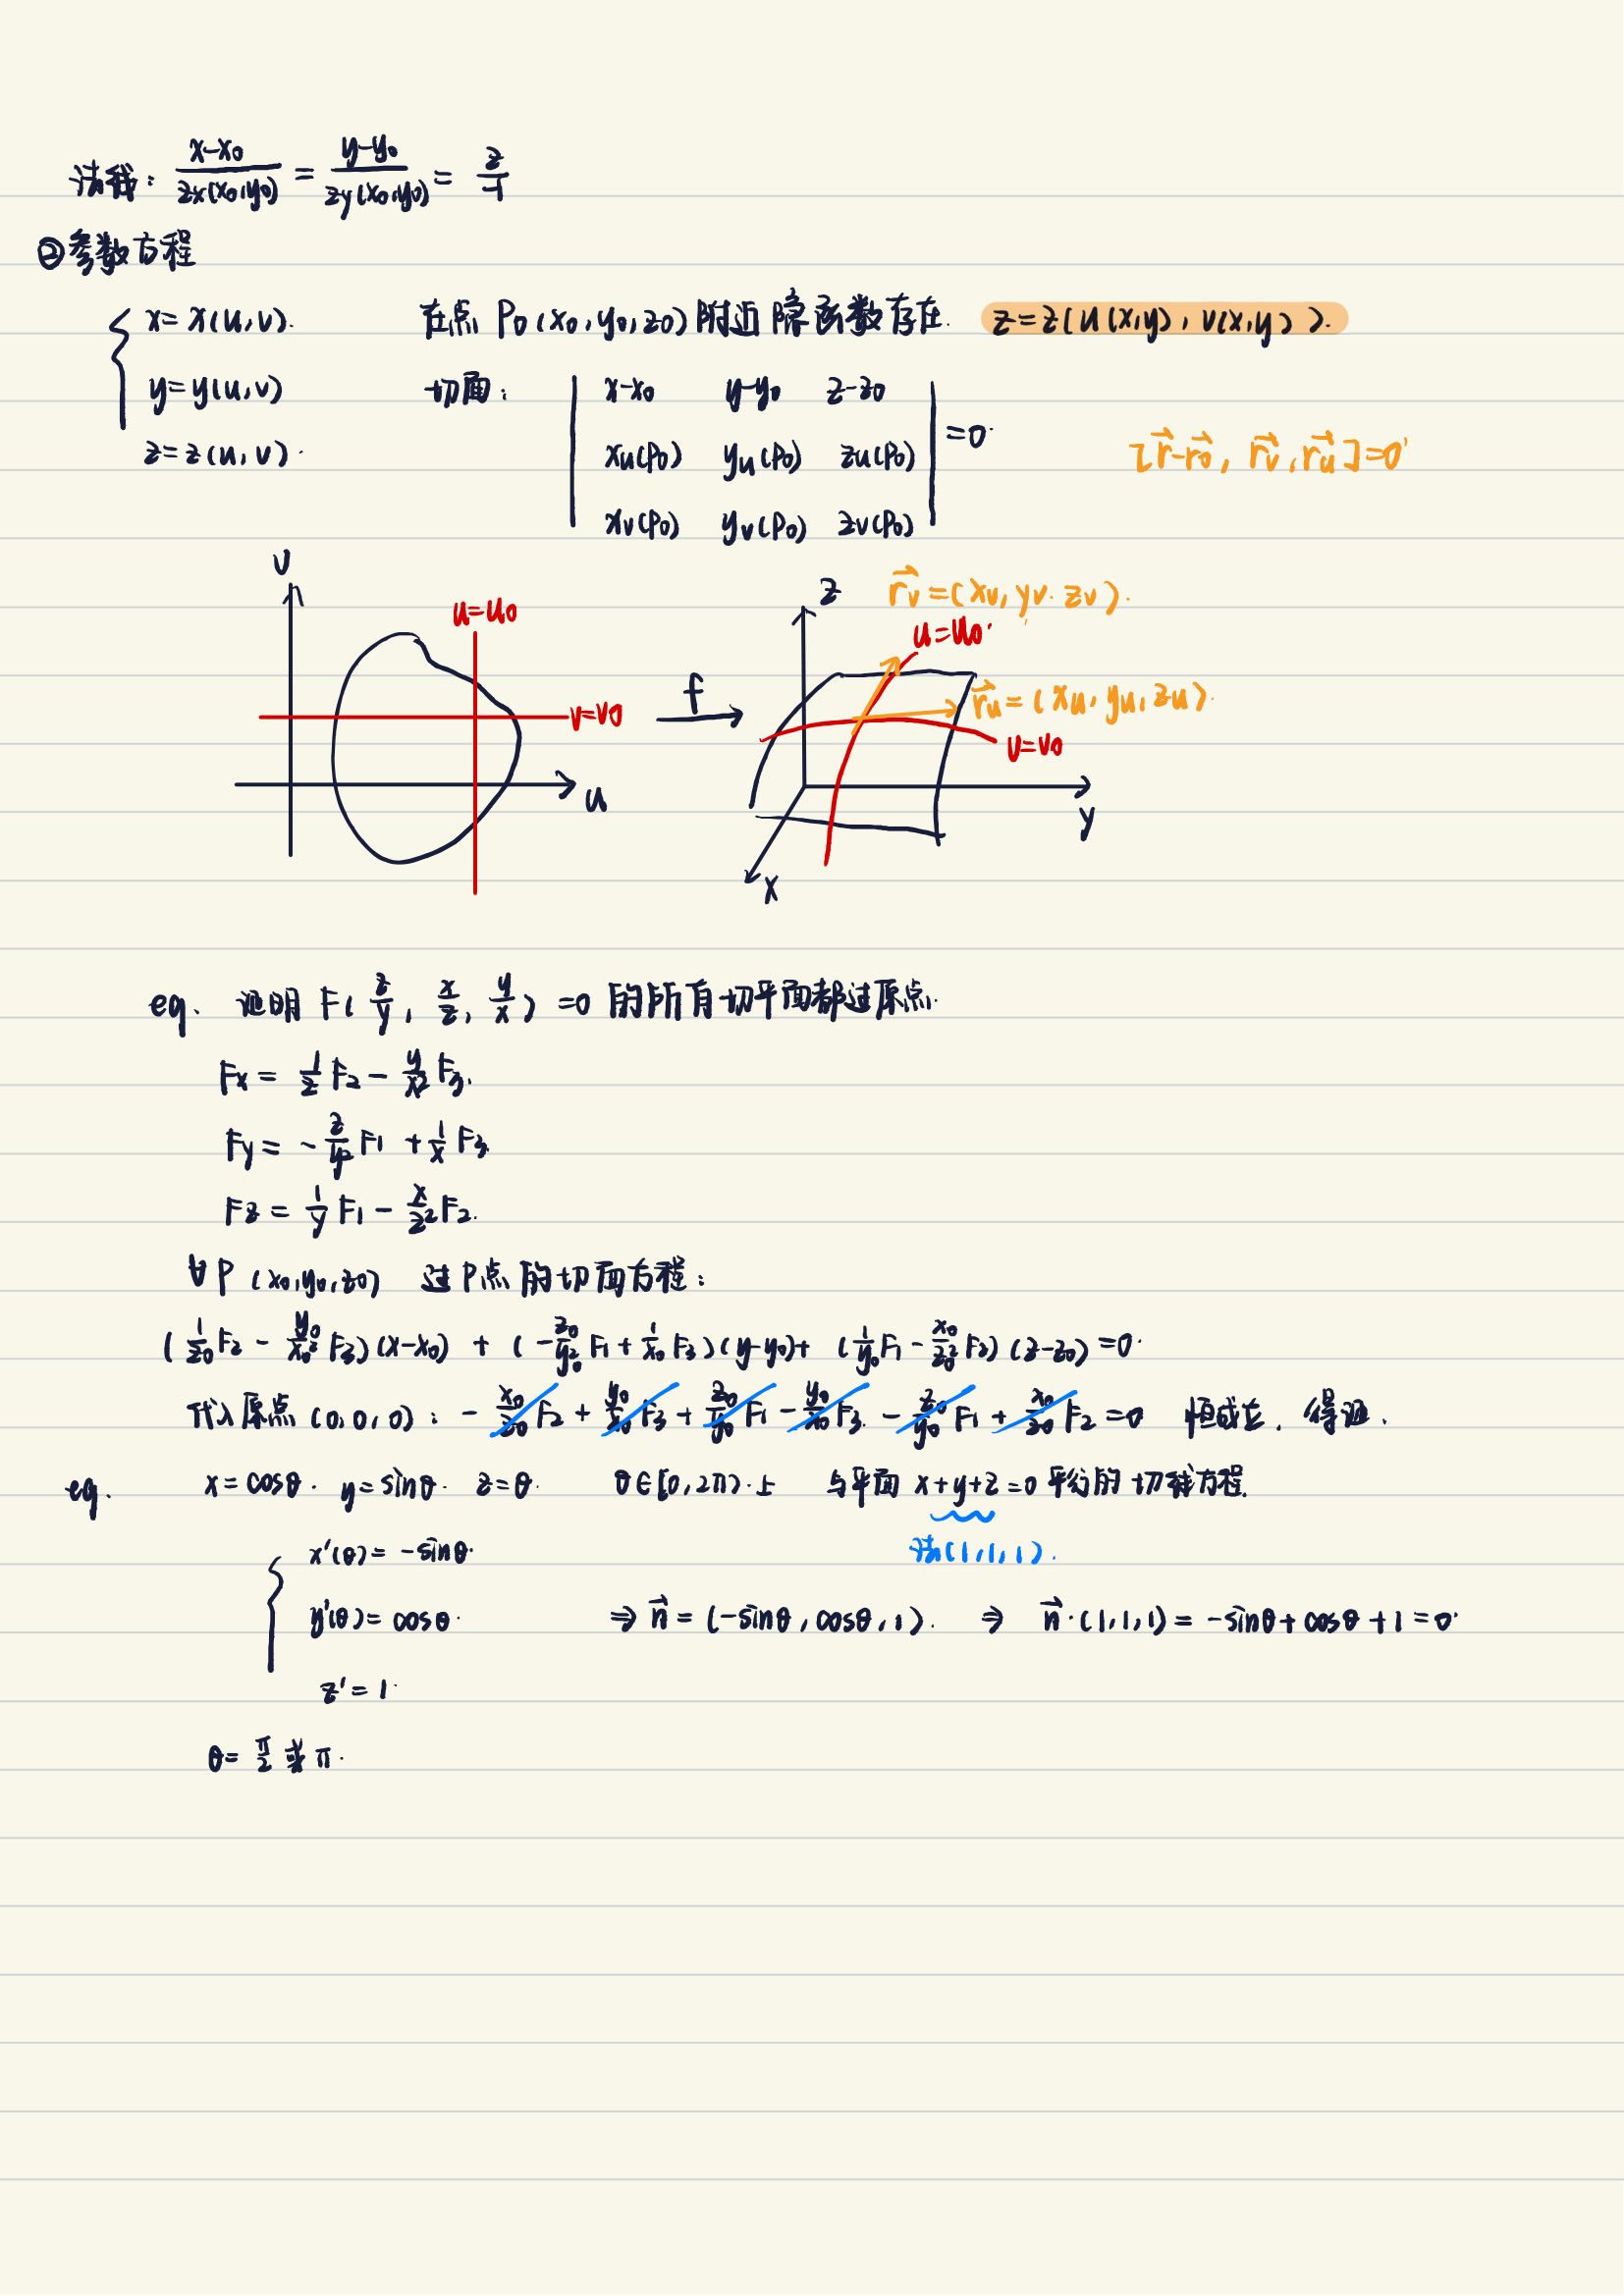 法线: (x-x₀)/(zx(x₀,y₀)) = (y-y₀)/(zy(x₀,y₀)) = z/-1
②参数方程
{ x = x(u,v). 在点 P₀(x₀,y₀,z₀)附近隐函数存在. z=z(u(x,y), v(x,y)).
y=y(u,v) 切面: | x-x₀ y-y₀ z-z₀ |
z=z(u,v). | xu(P₀) yu(P₀) zu(P₀) | =0. [r⃗-r⃗₀, r⃗v, r⃗u]=0
| xv(P₀) yv(P₀) zv(P₀) |
v z r⃗v=(xv, yv. zv).
u=u₀ u=u₀.
v=v₀ f r⃗u=(xu, yu, zu).
v=v₀
u y
x
eq. 证明 F(z/y, x/z, y/x)=0 的所有切平面都过原点.
Fx = 1/z F₂ - y/x² F₃.
Fy = -z/y² F₁ + 1/x F₃
Fz = 1/y F₁ - x/z² F₂.
∀P(x₀,y₀,z₀) 过P点的切面方程:
(1/z₀ F₂ - y₀/x₀² F₃)(x-x₀) + (-z₀/y₀² F₁ + 1/x₀ F₃)(y-y₀) + (1/y₀ F₁ - x₀/z₀² F₂)(z-z₀)=0.
代入原点(0,0,0): -x₀/z₀ F₂ + y₀/x₀ F₃ + z₀/y₀ F₁ - y₀/x₀ F₃. - z₀/y₀ F₁ + x₀/z₀ F₂ =0 恒成立. 得证.
eq. x=cosθ. y=sinθ. z=θ. θ∈[0,2π).上 与平面 x+y+z=0 平行的切线方程.
x'(θ)=-sinθ. 法n(1,1,1).
{ y'(θ)=cosθ. ⇒ n⃗=(-sinθ,cosθ,1). ⇒ n⃗·(1,1,1)=-sinθ+cosθ+1=0.
z'=1.
θ= π/2 或 π.